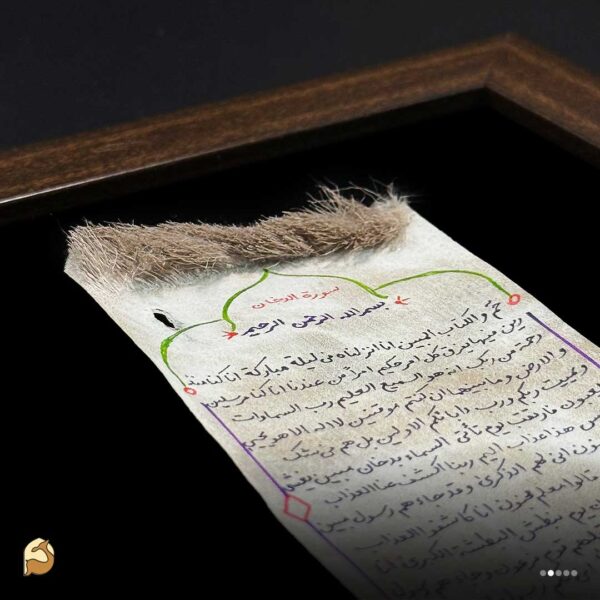 سورة الدخان
بسم الله الرحمن الرحيم
حم والكتاب المبين انا انزلناه في ليلة مباركة انا كنا منذ
رين فيها يفرق كل امر حكيم امرا من عندنا انا كنا مرسلين
رحمة من ربك انه هو السميع العليم رب السماوات
و الارض و ما بينهما ان كنتم موقنين لا اله الا هو يحيي
و يميت ربكم و رب ابائكم الاولين بل هم في شك
يلعبون فارتقب يوم تأتي السماء بدخان مبين يغشى
هذا عذاب اليم ربنا اكشف عنا العذاب
انى لهم الذكرى و قد جاءهم رسول مبين
قالوا معلم مجنون انا كاشفوا العذاب
يوم نبطش البطشة الكبرى انا
قبلهم قوم فرعون و جاءهم رسول